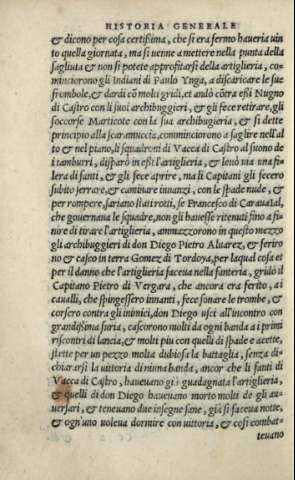 HISTORIA GENERALE
& dicono per cosa certissima, che si era fermo haueria uin
to quella giornata, ma si uenne a mettere nella punta della
sagliuta & non si potete approfitarsi della artiglieria, co-
minciorono gli Indiani di Paulo Ynga, a discaricare le sue
frombole, & dardi cõ molti gridi, et andò cõtra essi Nugno
di Castro con li suoi archibuggieri, & gli fece retirare, gli
soccorse Marticote con la sua archibugieria, & si dette
principio alla scaramuccia, comminciorono a saglire nell'al
to & nel piano, li squadroni di Vacca di Castro al suono de
i tamburri, disparò in essi l'artiglieria, & leuò uia una fi-
lera di fanti, & gli fece aprire, ma li Capitani gli fecero
subito serrare, & caminare innanzi, con le spade nude, &
per rompere, sariano stati rotti, se Francesco di Carauaial,
che gouernaua le squadre, non gli hauesse ritenuti fino a fi-
nire di tirare l'artiglieria, ammazzorono in questo mezzo
gli archibuggieri di don Diego Pietro Aluarez, & feriro
no & casco in terra Gomez di Tordoya, per laqual cosa et
per il danno che l'artiglieria faceua nella fanteria, gridò il
Capitano Pietro di Vergara, che ancora era ferito, ai
caualli, che spingessero innanti, fece sonare le trombe, &
corsero contra gli inimici, don Diego uscì all'incontro con
grandissima furia, cascorono molti da ogni banda a i primi
riscontri di lancia, & molti piu con quelli di spade e accette,
stette per un pezzo molta dubiosa la battaglia, senza di-
chiararsi la uittoria di niuna banda, ancor che li fanti di
Vacca di Castro, haueuano già guadagnata l'artiglieria,
& quelli di don Diego haueuano morto molti de gli au-
uersari, & teneuano due insegne sane, già si faceua notte,
& ogn'uno uoleua dormire con uittoria, & cosi combat-
teuano